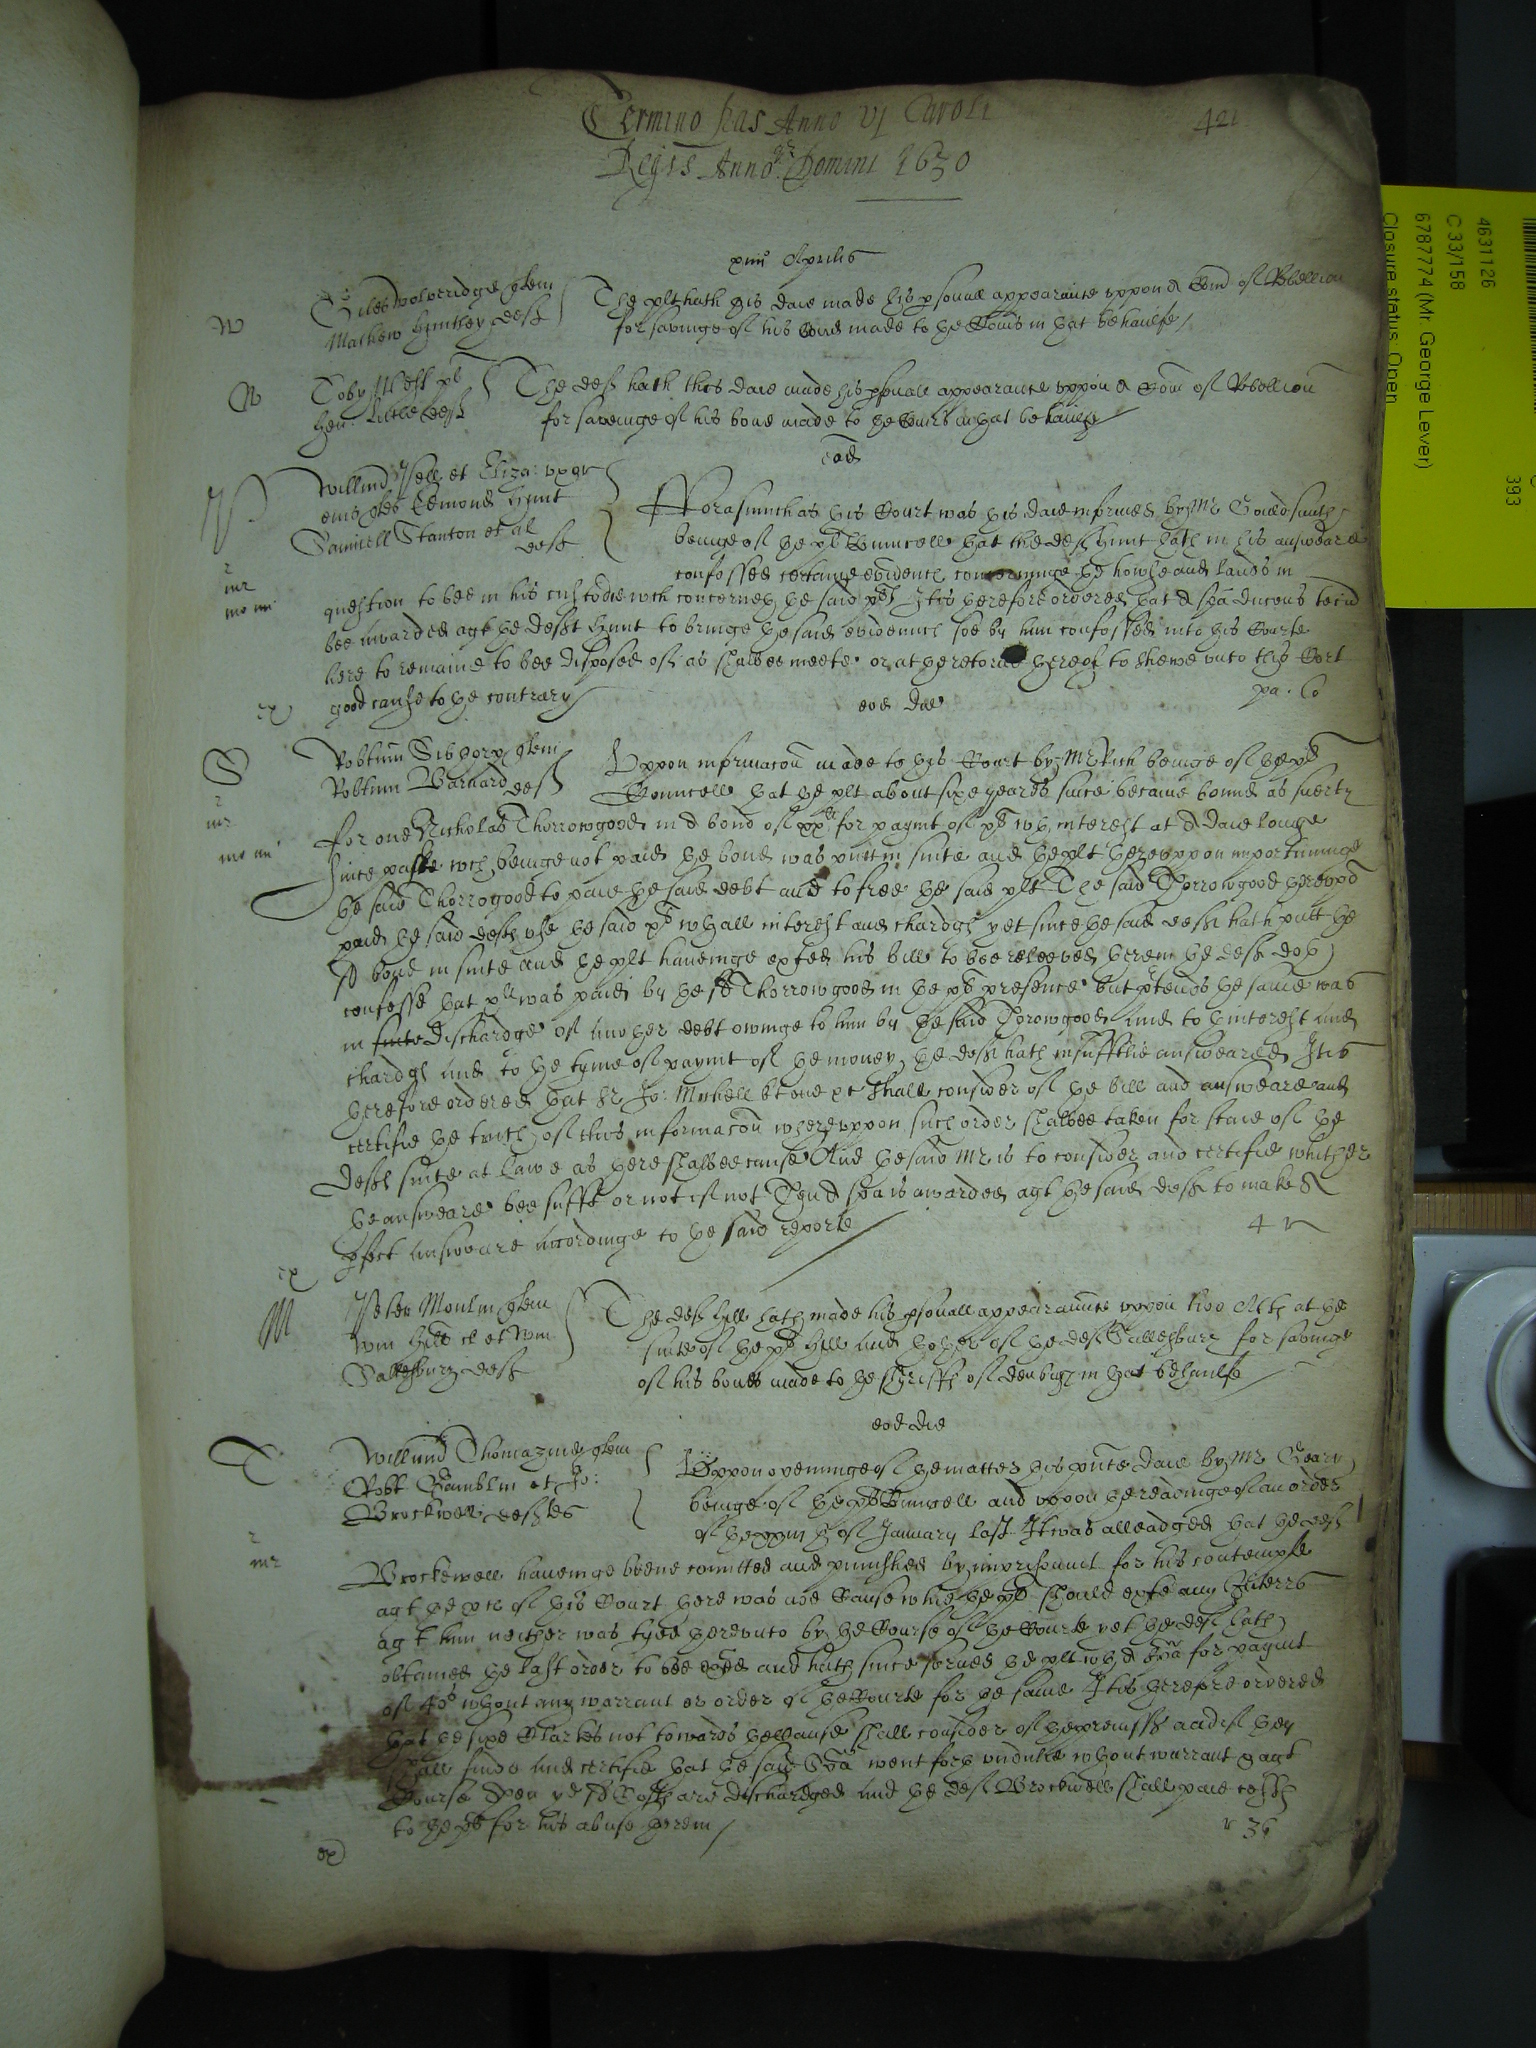 Termino Pas Anno vj Caroli
Regis Annoq Domini 1630
421
xiiijo Aprilis
W
Giles Wolveridge quem
Mathew Huntley deft
The plt hath this daie made his psonall appearaunce uppon a Com of Rebellion
for savinge of his bond made to the Courte in that behaulfe
W
Toby West pl
Hen: Little deft
The deft hath this daie made his psonall appearance uppon a Com of Rebellion
for saveinge of his bond made to the Courte in that behaulfe
eod
Willmu Isell et Eliza: uxor
eius qtes Edmond Hunt
Samuell Stanton et al
deft
Forasmuch as this Court was this daie informed by Mr Gouldsmith
beinge of the pl Councell that the deft Hunt hath in his answeare
confessed certaine evidence concerninge the howse and lands in
mr
question to bee in his custodie wch concerneth the said plt It is therefore ordered that a spa ducens tecu
bee awarded agt the deft Hunt to bringe the said evidence soe by him confessed into this Courte
here to remaine to bee disposed of as shalbee meete or at the retorne thereof to shewe unto this Cort
good cause to the contrary
pa. Co
ex
eod die
S
Robtum Sibthorp quem
Robtum Barnard deft
Uppon informacon made to this Court by Mr Rich beinge of the plts
Councell that the plt about sixe yeares since became bound as suerty
mr
for one Nicholas Thorrowgood in a bond of xxli for paymt of xli wth interest at a daie longe
since paste wch beinge not paid the bond was putt in suite and the plt thereuppon importuninge
the said Thorrogood to paie the said debt and to free the said plt The said Thorrowgood thereupo
paid the said deft the said xli wth all interest and chardgs yet since the said deft hath putt the
sd bond in suite and the plt haveinge exhted his bill to bee releeved therein the deft doth
confesse that xli was paid by the sd Thorrowgood in the plts presence but ptends the same was
in suite dischardge of another debt owinge to him by the said Thorowgood and to thinterest and
chardgs and to the tyme of paymt of the money the deft hath insufftlie answeared It is
therefore ordered that Sr Jo: Michell kt one etc shall consider of the bill and answeare and
certifie the truth of this informacon whereuppon such order shalbee taken for staie of the
defts suite at lawe as there shalbee cause And the said Mr is to consider and certifie whither
the answeare bee sufft or not if not Then a spa is awarded agt the said deft to make a
pfect answeare accordinge to the said reporte
4 r
ex
M
Peter Moulin quem
Wm Hill et Wm
Sallesbury deft
The deft Hill hath made his psonall appearaunce uppon two Atts at the
suite of the plt Hill and thother of the deft Sallesbury for savinge
of his bonds made to the Shriffe of Denbigh in that behaulfe
eod die
T
Willmu Thomazine quem
Robt Gamblin et Jo:
Brockwell deftes
Uppon openinge of the matter this pnte daie by Mr Geary
beinge of the plts Councell and uppon the readinge of an order
of the xxiijth of January last It was alleadged that the deft
mr
Brockewell haveinge beene comitted and punished by imprisonmt for his contempte
agt the pces of this Court there was noe Cause whie the plt should exhte any Interrs
agt him neither was tyed thereunto by the Course of the Courte yet the deft hath
obtained the last order to bee and hath since served the plt wth a spa for paymt
of 40s wthout any warrant or order of the Courte for the same It is therefore ordered
that the sixe Clarkes not towards the Cause shall consider of the premisses and if they
shall finde and certifie that the said spa went forth undulie wthout warrant & agt
Course Then the sd Costs are dischardged and the deft Brockwell shall paie costs
to the plt for his abuse herein
r 36
ex
Closure status: Open
6787774 (Mr. George Lever)
C 33/158
4631126
393